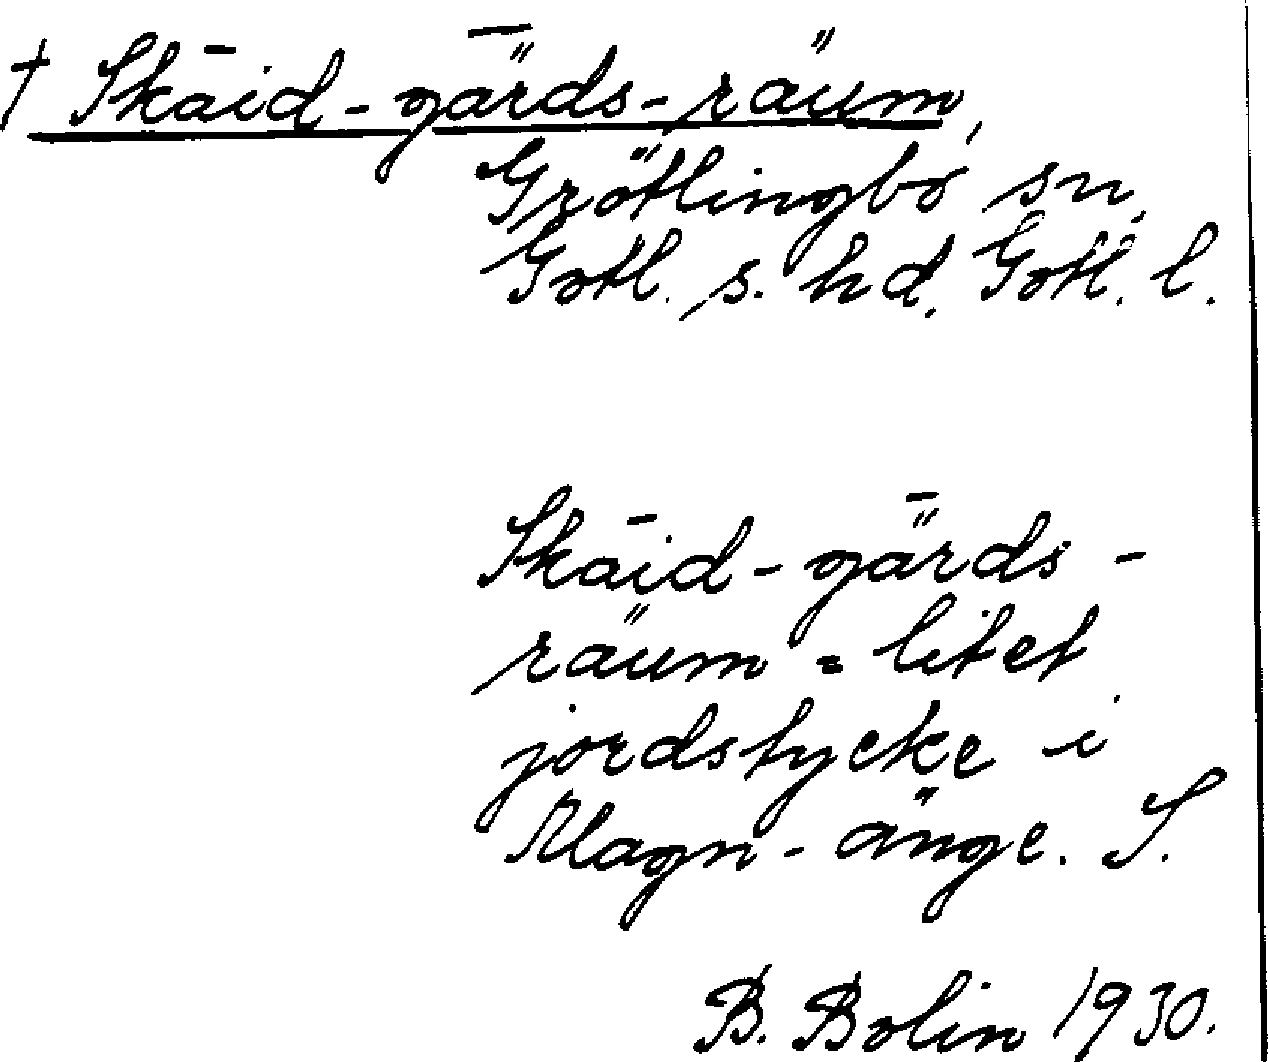 † Skāid-gǟrds-räum,
Grötlingbo sn,
Gotl. s. hd. Gotl. l.
Skāid-gǟrds-
räum = litet
jordstycke i
Magn-änge. S.
B. Bolin 1930.